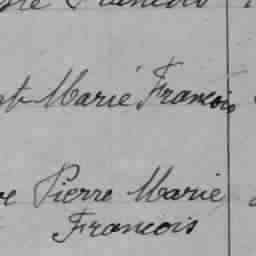 François
Marie François
Pierre Marie
François